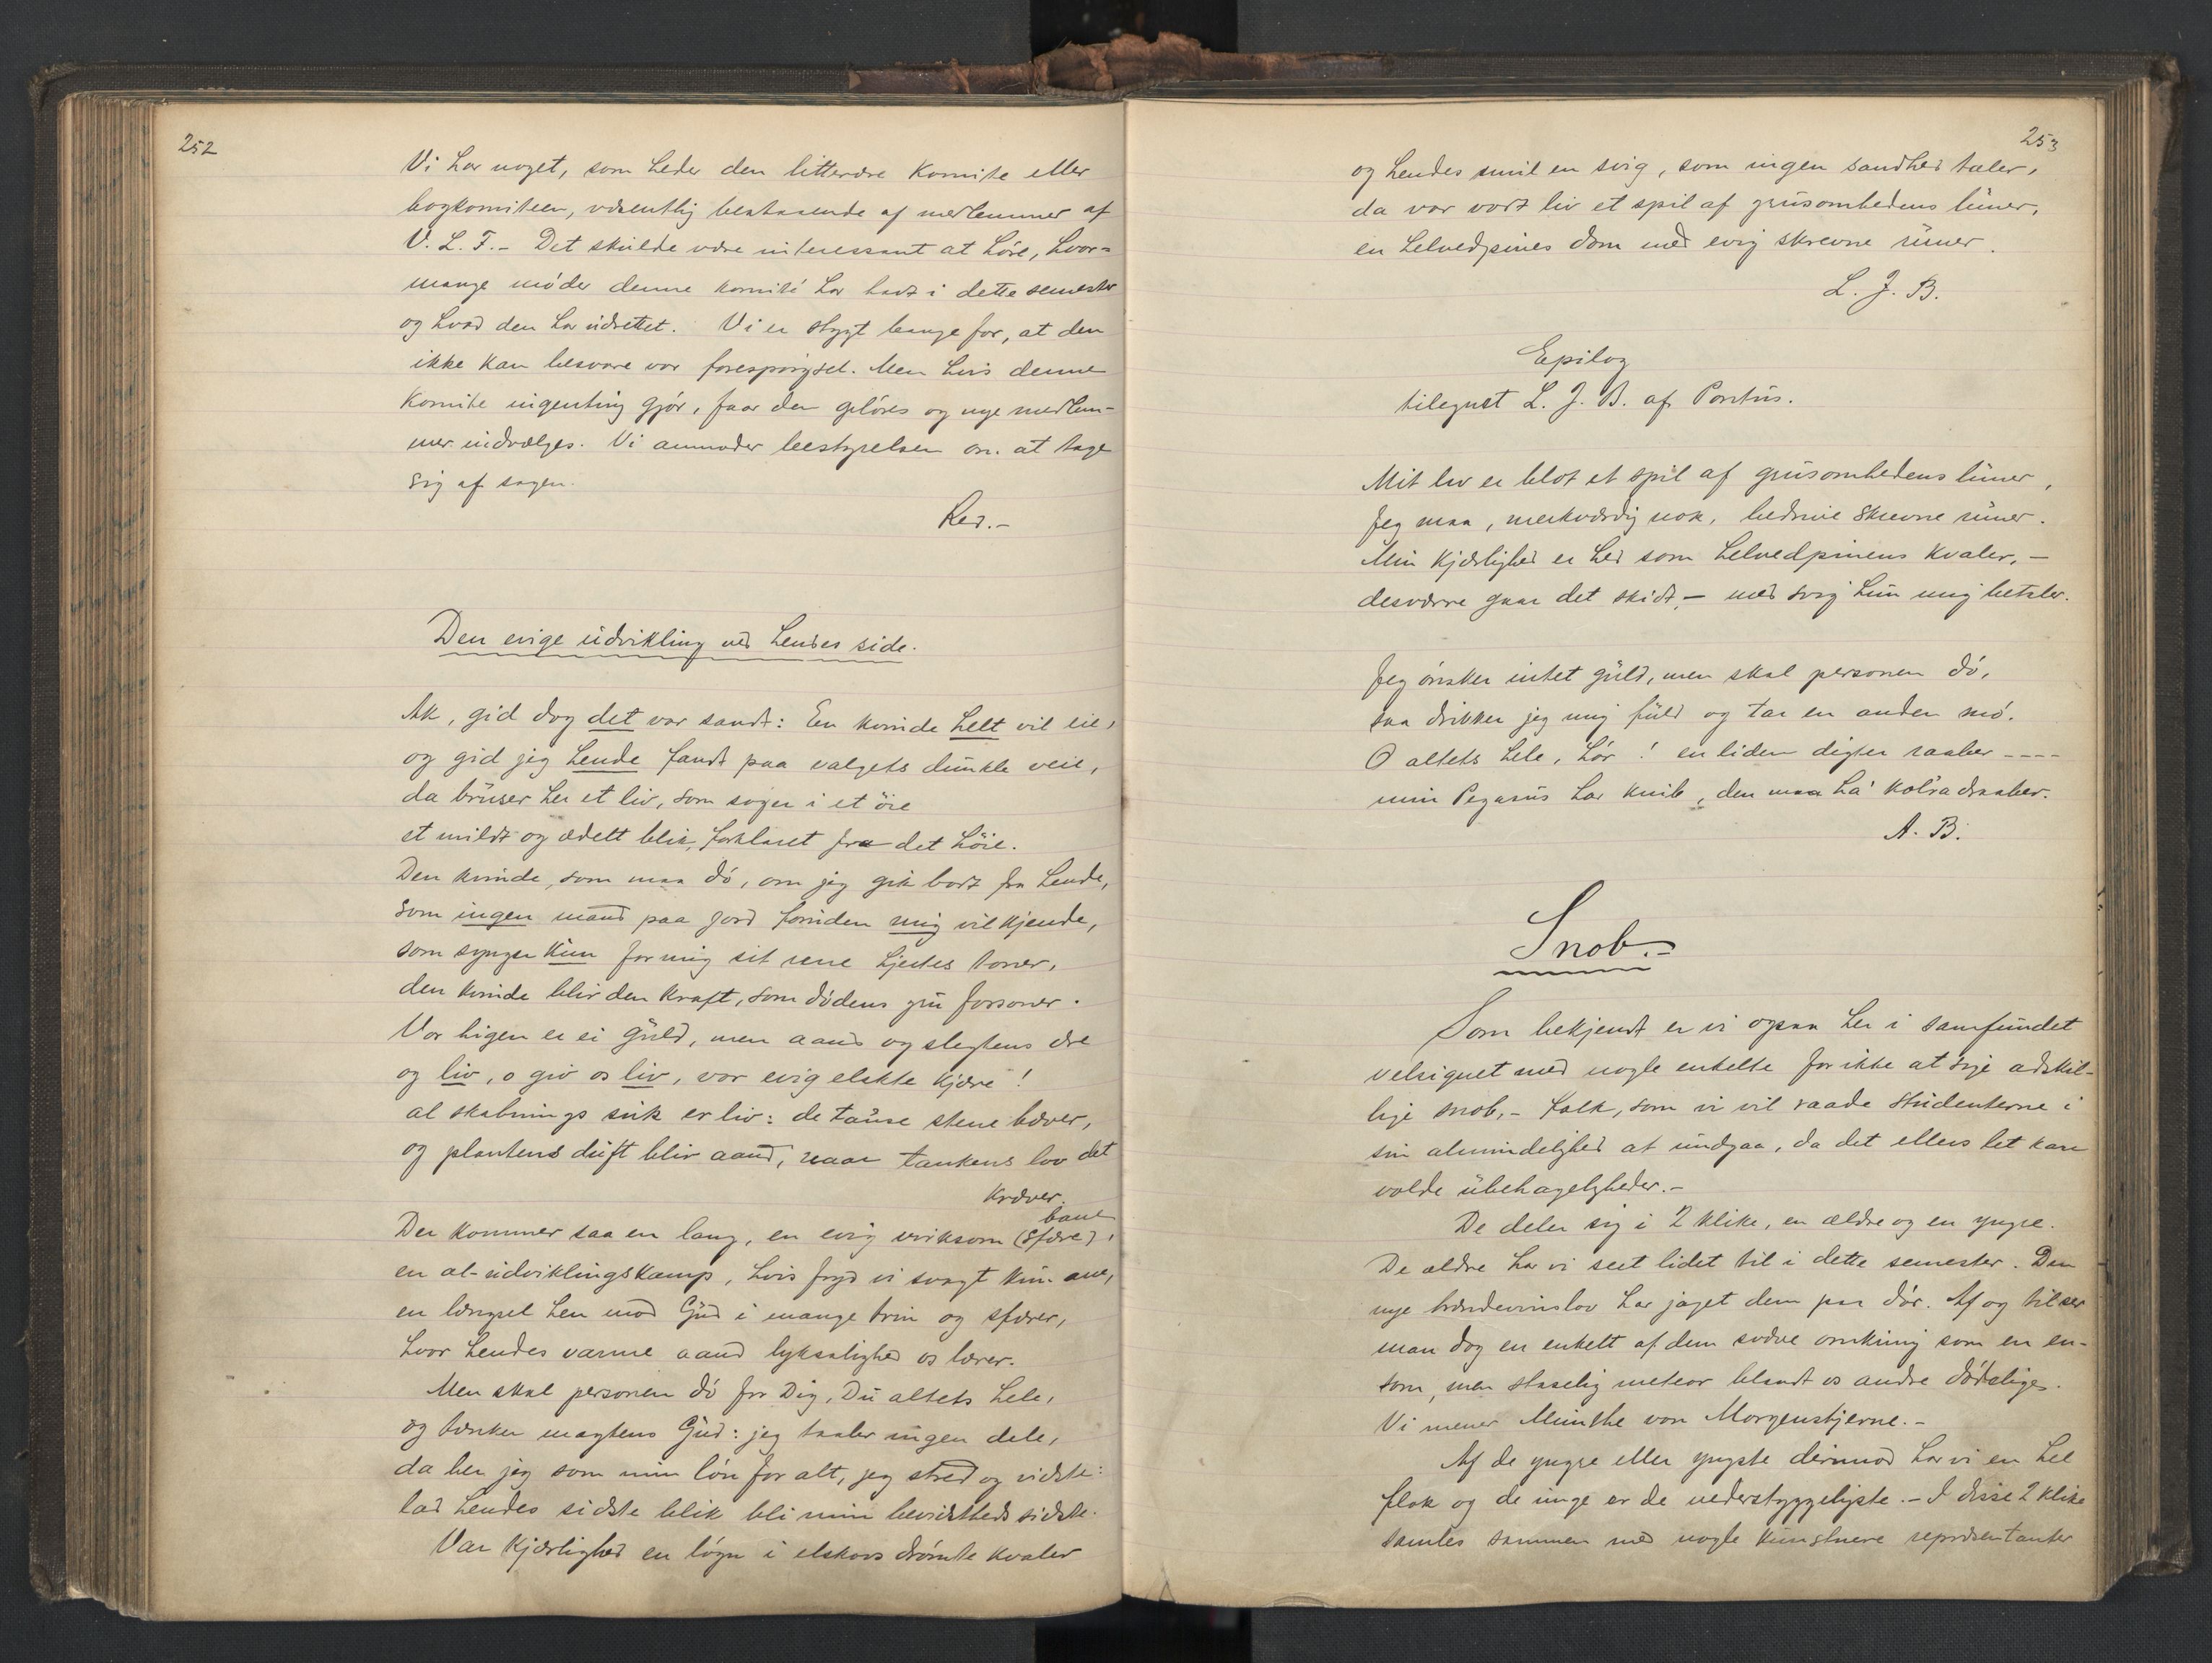 252
Vi har noget, som heder den litterære komite eller
bogkomiteen, væsentlig bestaaende af medlemmer af
V. L. F. - Det skulde være interessant at høre, hvor-
mange møder denne komité har havt i dette semester
og hvad den har udrettet. Vi er stygt bange for, at den
ikke kan besvare vor forespørgsel. Men hvis denne
komite ingenting gjør, faar den opløses og nye medlem-
mer indvælges. Vi anmoder bestyrelsen om at tage
sig af sagen.
Red. -
Den evige udvikling ved hendes side.
Ak, gid dog det var sandt: En kvinde helt vil eie,
og gid jeg hende fandt paa valgets dunkle veie,
da bruser her et liv, som søger i et öie
et mildt og ædelt blik, forklaret fra det höie.
Den kvinde, som maa dø, om jeg gik bort fra hende,
som ingen mand paa jord foruden mig vil kjende,
som synger kun for mig sit rene hjertes toner,
den kvinde blir den kraft, som dødens gru forsoner.
Vor higen er ei guld, men aand og slegtens ære
og liv, o giv os liv, vor evig elskte kjære!
al skabnings suk er liv: de tause stene bæver,
og plantens duft blir aand, naar tankens lov det
kræver.
Der kommer saa en lang, en evig virksom (sfære) bane,
en al-udviklingskamp, hvis fryd vi svagt kun ane,
en længsel hen mod Gud i mange trin og sfærer,
hvor hendes varme aand lyksalighed os lærer.
Men skal personen dø for Dig, Du altets hele,
og tænker magtens Gud: jeg taaler ingen dele,
da ber jeg som min løn for alt, jeg stred og vidste:
lad hendes sidste blik bli min bevidstheds sidste.
Var kjærlighed en løgn i elskovs drømte kvaler
253
og hendes smil en svig, som ingen sandhed taler,
da var vort liv et spil af grusomhedens luner,
en helvedpines dom med evig skrevne runer.
L. J. B.
Epilog
tilegnet L. J. B. af Pontus.
Mit liv er blot et spil af grusomhedens luner,
Jeg maa, merkværdig nok, bedrive skrevne runer.
Min kjærlighed er hed som helvedpinens kvaler, -
desværre gaar det skidt, - med svig hun mig betaler.
Jeg ønsker intet guld, men skal personen dø,
saa drikker jeg mig fuld og tar en anden mø.
O altets hele, hør! en liden digter raaber ----
min Pegasus har knib, den maa ha' koleradraaber.
A. B.
Snob. -
Som bekjendt er vi ogsaa her i samfundet
velsignet med nogle enkelte for ikke at sige adskil-
lige snob, - folk, som vi vil raade studenterne i
sin almindelighed at undgaa, da det ellers let kan
volde ubehageligheder. -
De deler sig i 2 klike, en ældre og en yngre.
De ældre har vi seet lidet til i dette semester. Den
nye brændevinslov har jaget dem paa dør. Af og til ser
man dog en enkelt af dem svæve omkring som en en-
som, men staselig meteor blandt os andre dødelige.
Vi mener Munthe von Morgenstjerne. -
Af de yngre eller yngste derimod har vi en hel
flok og de unge er de vederstyggeligste. - I disse 2 klike
samles sammen med nogle kunstnere repræsentanter